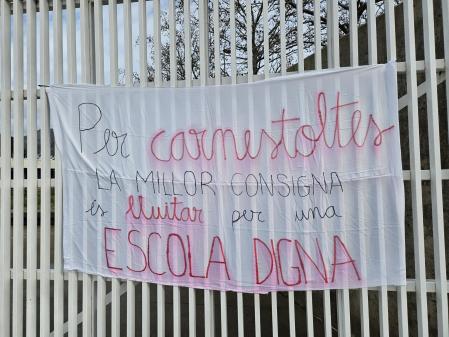 Per carnestoltes
LA MILLOR CONSIGNA
és lluitar per una
ESCOLA DIGNA